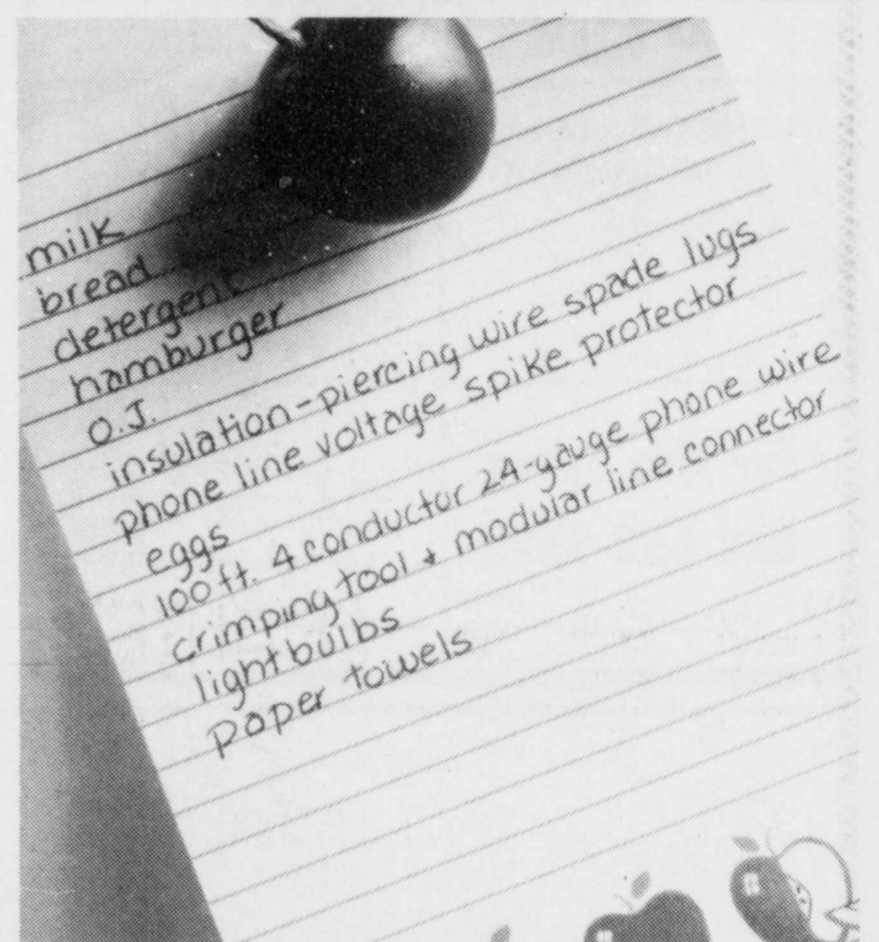 milk
bread
detergent
hamburger
O.J.
insulation-piercing wire spade lugs
phone line voltage spike protector
eggs
100 ft. 4 conductor 24-gauge phone wire
crimping tool & modular line connector
lightbulbs
paper towels